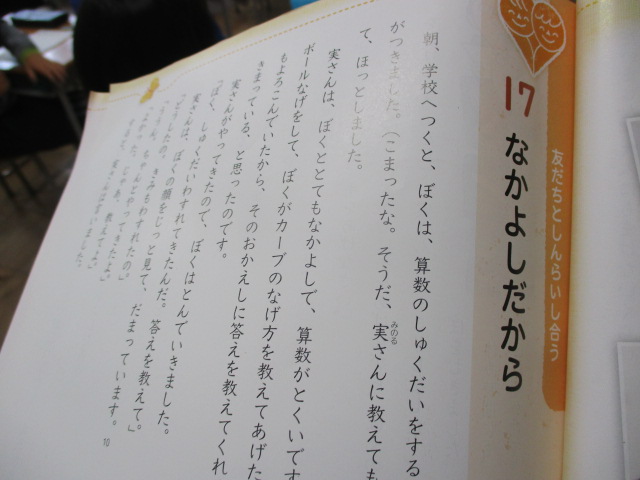 友だちとしんらいし合う
17 なかよしだから
朝、学校へつくと、ぼくは、算数のしゅくだいをする
がつきました。（こまったな。そうだ、実さんに教えても
みのる
て、ほっとしました。
実さんは、ぼくととてもなかよしで、算数がとくいです
ボールなげをして、ぼくがカーブのなげ方を教えてあげた
もよろこんでいたから、そのおかえしに答えを教えてくれ
きまっている、と思ったのです。
実さんがやってきたので、ぼくはとんでいきました。
「ぼく、しゅくだいわすれてきたんだ。答えを教えて。」
実さんは、ぼくの顔をじっと見て、だまっています。
「どうしたの。きみもわすれたの」
「ううん、ちゃんとやってきたよ」
「よかった。じゃあ、教えてよ」
10